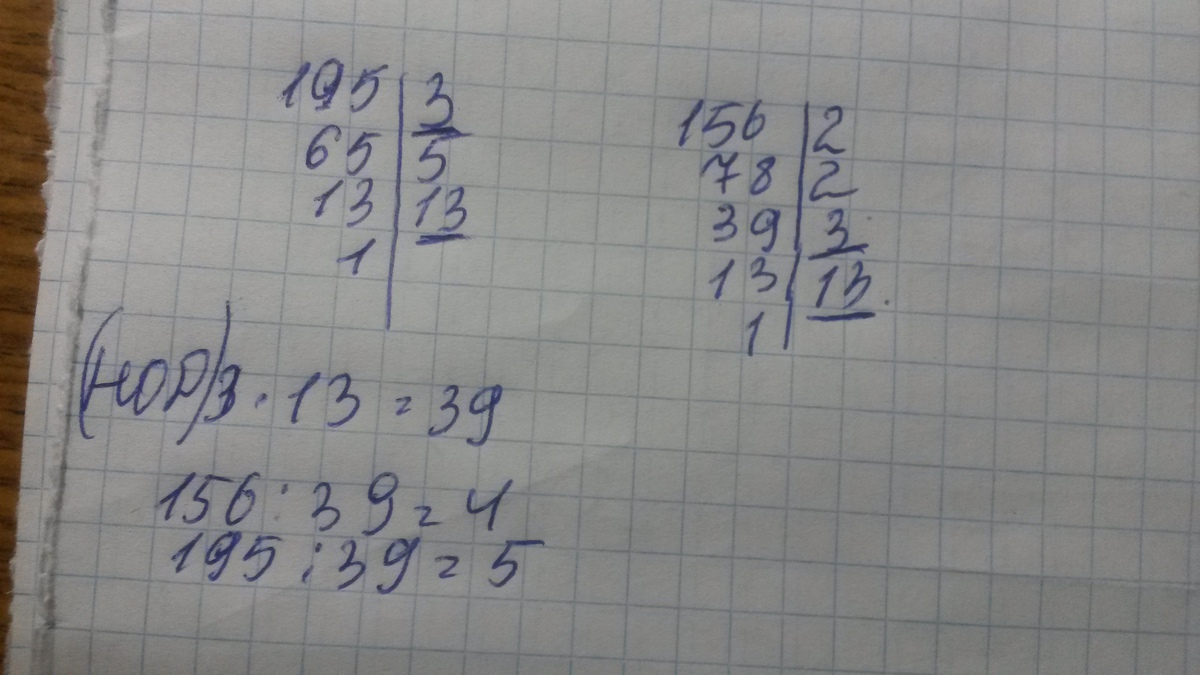 195 | 3
65 | 5
13 | 13
1
156 | 2
78 | 2
39 | 3
13 | 13
1
(НОД) 3 · 13 = 39
156 : 39 = 4
195 : 39 = 5